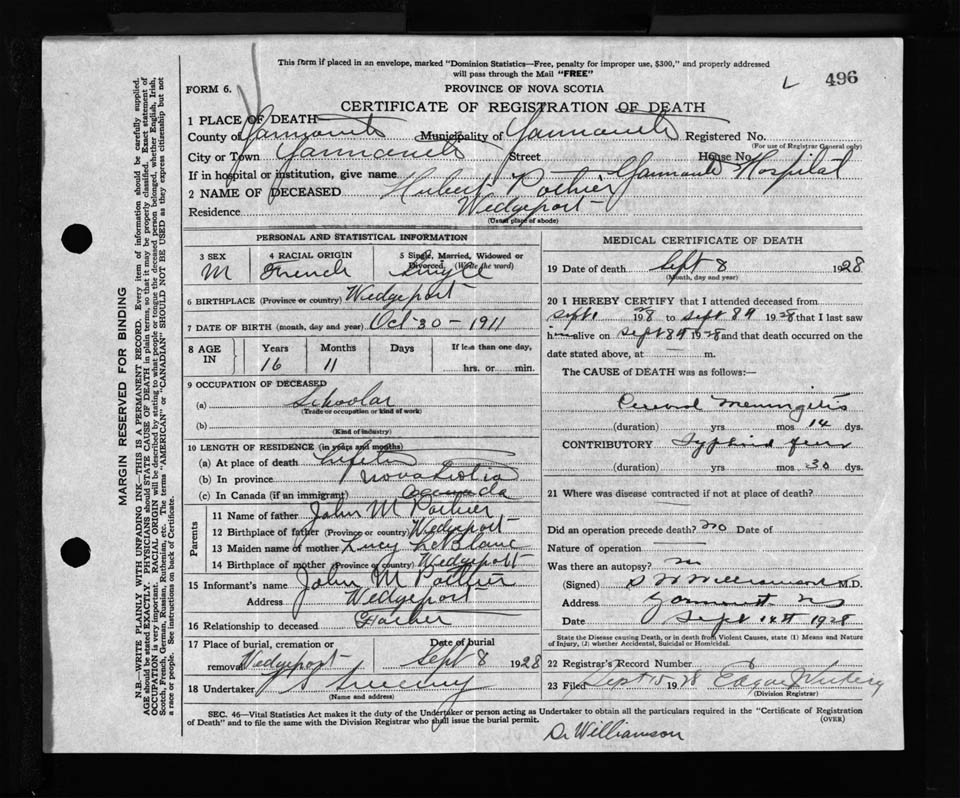 This form if placed in an envelope, marked "Dominion Statistics—Free, penalty for improper use, $300," and properly addressed
will pass through the Mail "FREE"
L 496
FORM 6.
PROVINCE OF NOVA SCOTIA
CERTIFICATE OF REGISTRATION OF DEATH
1 PLACE OF DEATH
County of Yarmouth Municipality of Yarmouth Registered No.
(For use of Registrar General only)
City or Town Yarmouth Street House No.
If in hospital or institution, give name Yarmouth Hospital
2 NAME OF DECEASED Hubert Pothier
Residence Wedgeport
(Usual place of abode)
PERSONAL AND STATISTICAL INFORMATION
3 SEX 4 RACIAL ORIGIN 5 Single, Married, Widowed or
Divorced. (Write the word)
M French Single
6 BIRTHPLACE (Province or country) Wedgeport
7 DATE OF BIRTH (month, day and year) Oct 30 - 1911
8 AGE IN Years Months Days If less than one day,
16 11 hrs. or min.
9 OCCUPATION OF DECEASED
(a) Schoolar
(Trade or occupation or kind of work)
(b)
(Kind of industry)
10 LENGTH OF RESIDENCE (in years and months)
(a) At place of death
(b) In province Nova Scotia
(c) In Canada (if an immigrant) Canada
Parents
11 Name of father John M Pothier
12 Birthplace of father (Province or country) Wedgeport
13 Maiden name of mother Lucy LeBlanc
14 Birthplace of mother (Province or country) Wedgeport
15 Informant's name John M Pothier
Address Wedgeport
16 Relationship to deceased Father
17 Place of burial, cremation or Date of burial
removal Wedgeport Sept 8 1928
18 Undertaker
(Name and address)
MEDICAL CERTIFICATE OF DEATH
19 Date of death Sept 8 1928
(Month, day and year)
20 I HEREBY CERTIFY that I attended deceased from
Sept 1 1928 to Sept 8th 1928 that I last saw
him alive on Sept 8th 1928 and that death occurred on the
date stated above, at m.
The CAUSE of DEATH was as follows:—
Meningitis
(duration) yrs mos 14 dys.
CONTRIBUTORY Typhoid fever
(duration) yrs mos 30 dys.
21 Where was disease contracted if not at place of death?
Did an operation precede death? no Date of
Nature of operation
Was there an autopsy? no
(Signed) Williamson M.D.
Address Yarmouth NS
Date Sept 14th 1928
State the Disease causing Death, or in death from Violent Causes, state (1) Means and Nature
of Injury, (2) whether Accidental, Suicidal or Homicidal.
22 Registrar's Record Number
23 Filed Sept 15 1928 Edgar
(Division Registrar)
SEC. 46—Vital Statistics Act makes it the duty of the Undertaker or person acting as Undertaker to obtain all the particulars required in the "Certificate of Registration
of Death" and to file the same with the Division Registrar who shall issue the burial permit.
(OVER)
Dr Williamson
MARGIN RESERVED FOR BINDING
N.B.—WRITE PLAINLY WITH UNFADING INK—THIS IS A PERMANENT RECORD. Every item of information should be carefully supplied.
AGE should be stated EXACTLY. PHYSICIANS should STATE CAUSE OF DEATH in plain terms, so that it may be properly classified. Exact statement of
OCCUPATION is very important. RACIAL ORIGIN will be described by stating to what people or tongue the deceased person belonged, whether English, Irish,
Scotch, French, German, Russian, Ruthenian, etc. The terms "AMERICAN" or "CANADIAN" SHOULD NOT BE USED as they express citizenship but not
a race or people. See instructions on back of Certificate.